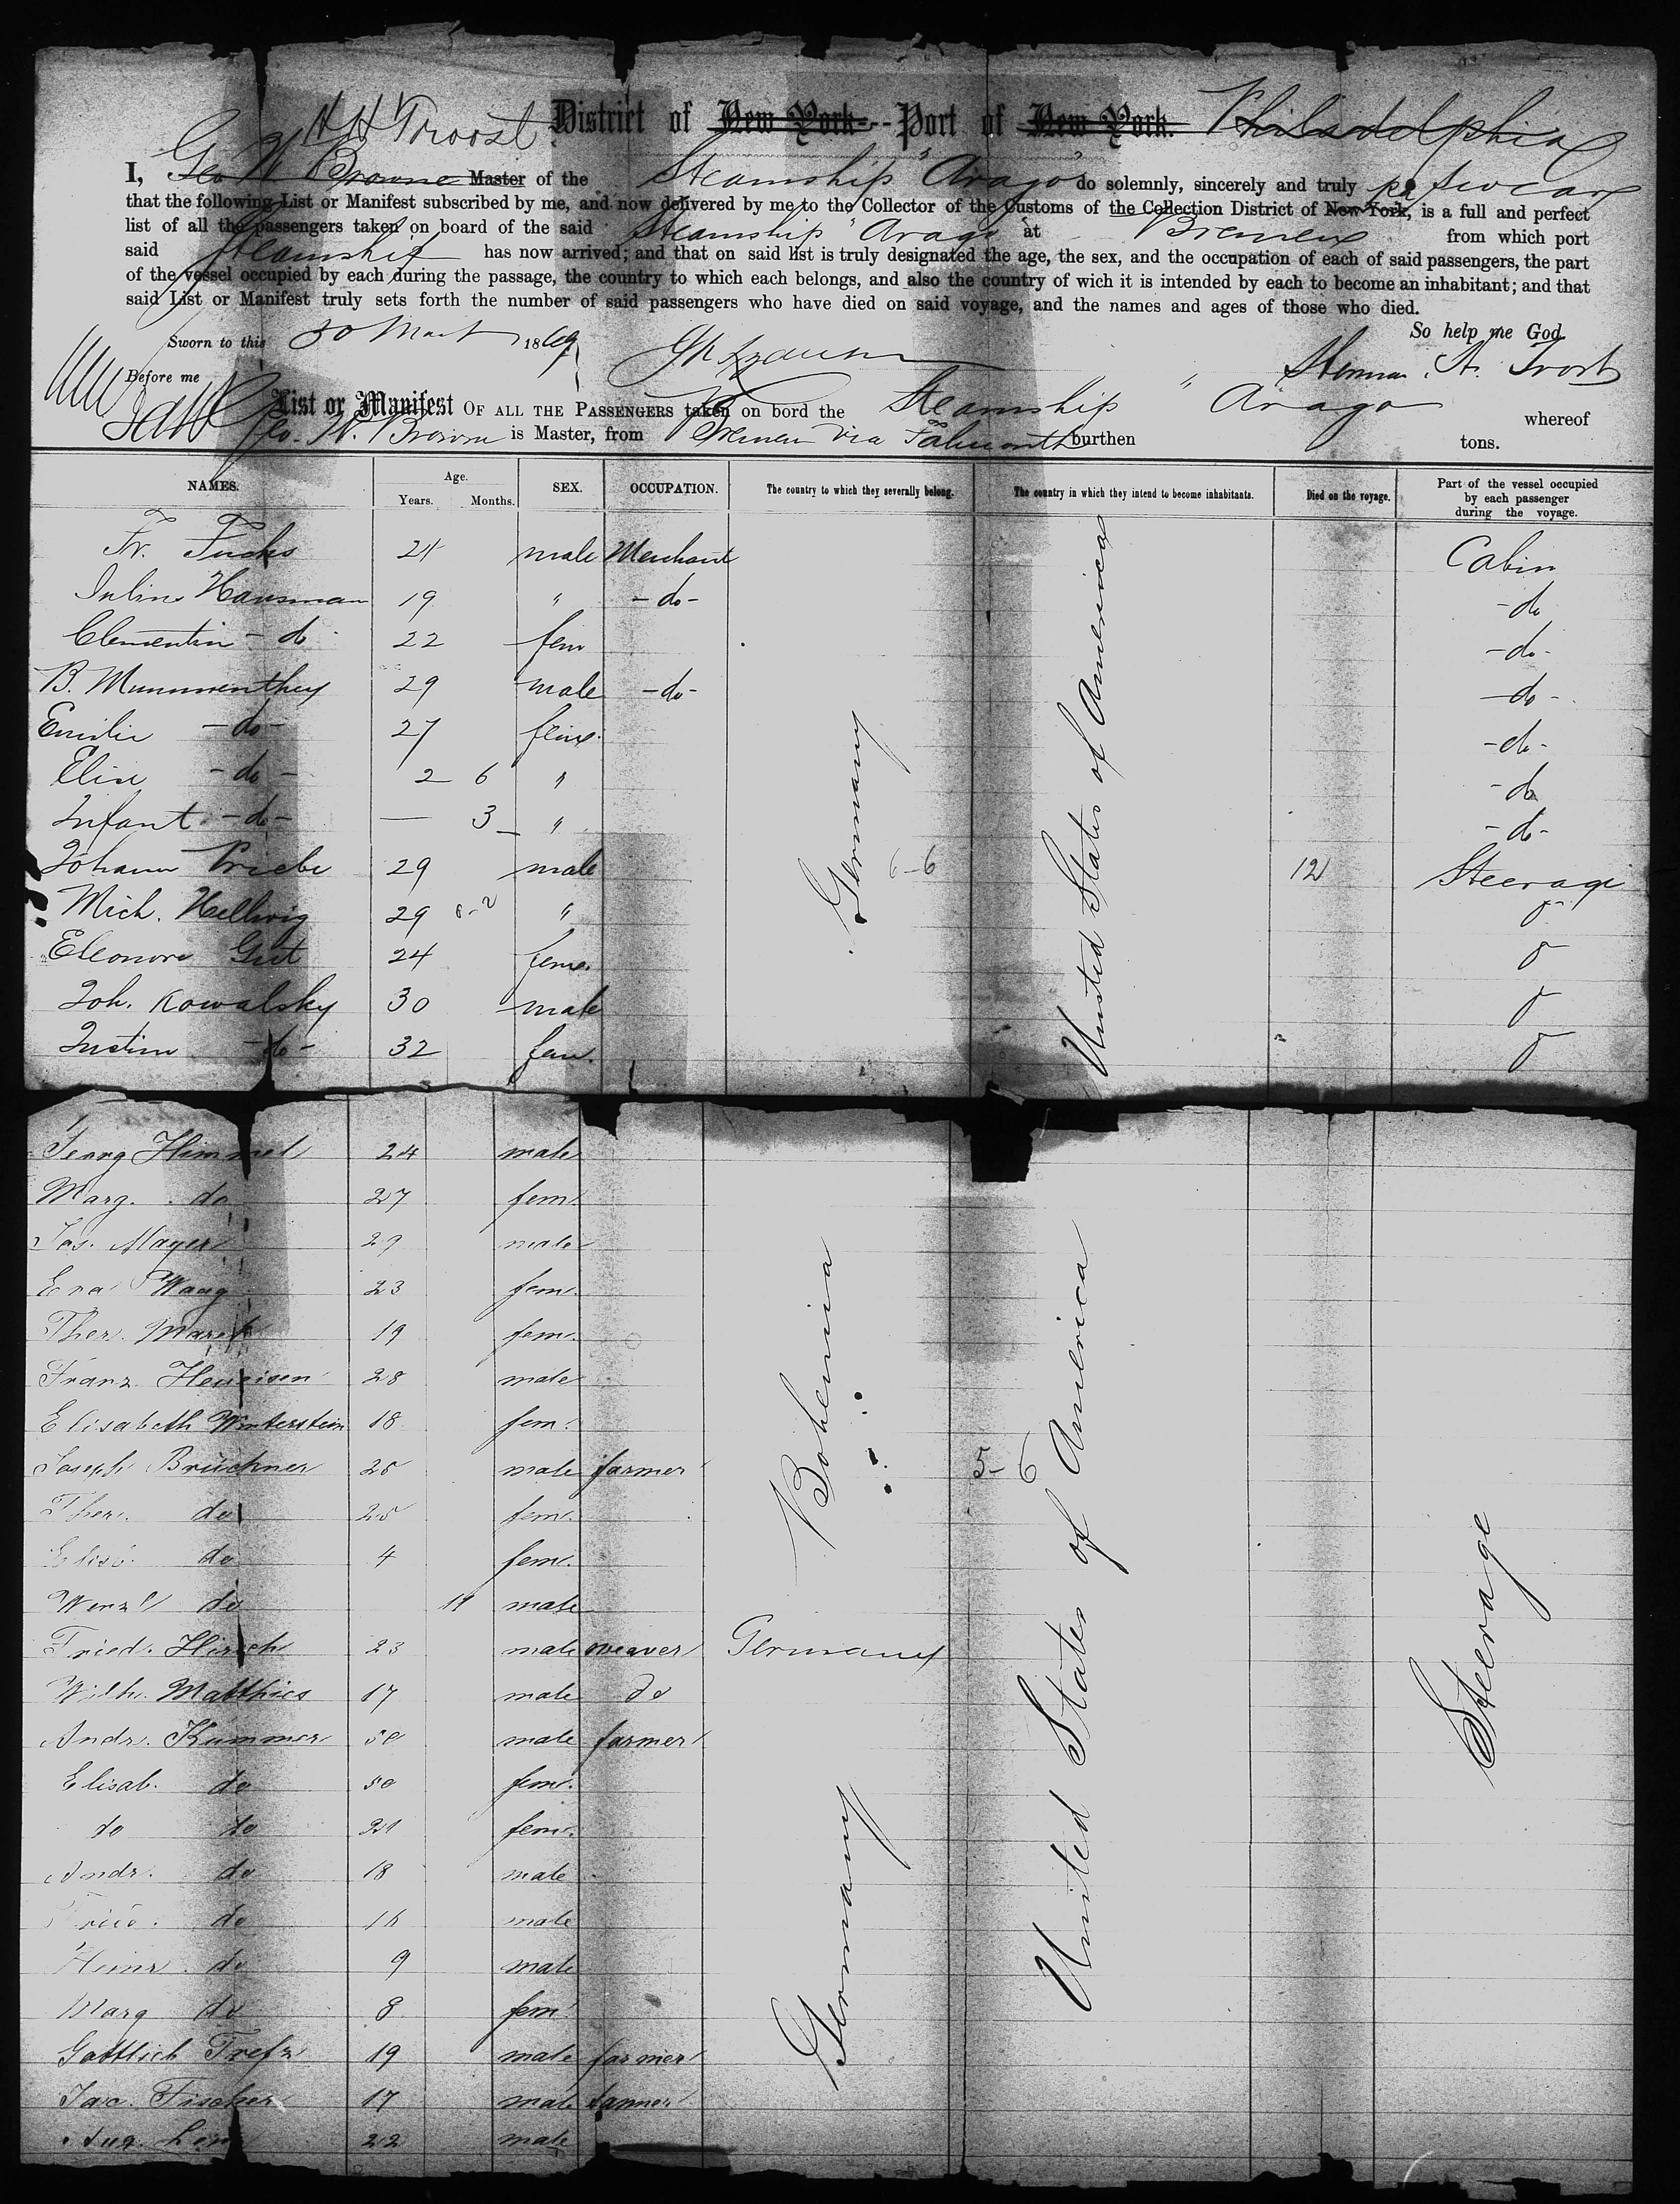 H H Troost District of New York -- Port of New York. Philadelphia
I, Geo W Browne Master of the Steamship "Arago" do solemnly, sincerely and truly
that the following List or Manifest subscribed by me, and now delivered by me to the Collector of the Customs of the Collection District of New York, is a full and perfect
list of all the passengers taken on board of the said Steamship "Arago" at Bremen from which port
said Steamship has now arrived; and that on said list is truly designated the age, the sex, and the occupation of each of said passengers, the part
of the vessel occupied by each during the passage, the country to which each belongs, and also the country of wich it is intended by each to become an inhabitant; and that
said List or Manifest truly sets forth the number of said passengers who have died on said voyage, and the names and ages of those who died.
So help me God.
Sworn to this 30 1869
Before me
List or Manifest OF ALL THE PASSENGERS taken on bord the Steamship "Arago whereof
Geo. W. Browne is Master, from Bremen via Falmouth burthen tons.
NAMES. Age. Years. Months. SEX. OCCUPATION. The country to which they severally belong. The country in which they intend to become inhabitants. Died on the voyage. Part of the vessel occupied by each passenger during the voyage.
Fr. Fuchs 24 male Merchant Cabin
Julius Hausman 19 " -do- -do
Clementin -do 22 fem -do-
B. Mummenthey 29 male -do- -do-
Emilie -do- 27 feme. -do-
Elise -do- 2 6 " -do
Infant -do- — 3 " -do-
Johann Priebe 29 male 6-6 12 Steerage
Mich. Hellwig 29 "
Eleonore Gut 24 feme.
Joh. Kowalsky 30 male
Justine -do- 32 fem.
Germany
United States of America
Georg Himmel 24 male
Marg. do 27 fem.
Jos. Mayer 29 male
Eva Waag 23 fem.
Ther. 19 fem.
Franz 28 male
Elisabeth Winterstein 18 fem.
Joseph Brückner 25 male farmer 5-6
Ther. do 25 fem.
Elise do 4 fem.
Wenzl do 11 male
Fried. Hirsch 23 male weaver Germany
Wilh. Matthies 17 male do
Andr. Kummer 50 male farmer
Elisab. do 50 fem.
do do 21 fem.
Andr. do 18 male
do 16 male
Heinr. do 9 male
Marg do 8 fem.
Gottlieb Trefz 19 male farmer
Jac. Fischer 17 male
Aug. 22 male
Bohemia
Germany
United States of America
Steerage